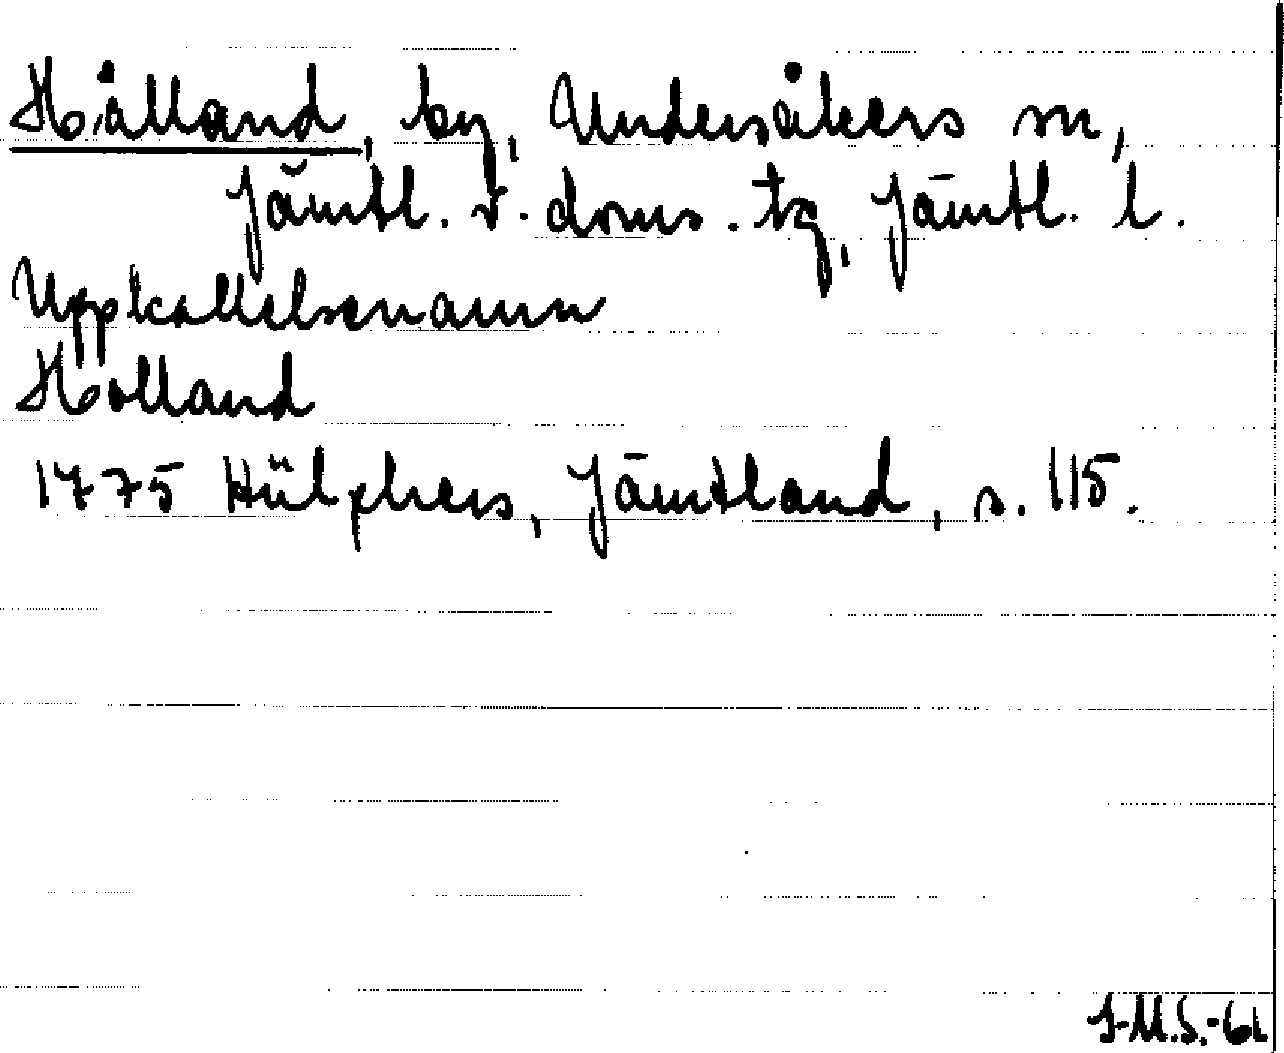 Hålland, by, Undersåkers sn,
Jämtl. v. doms. tg, Jämtl. l.
Uppkallelsenamn
Holland
1775 Hülphers, Jämtland, s. 115.